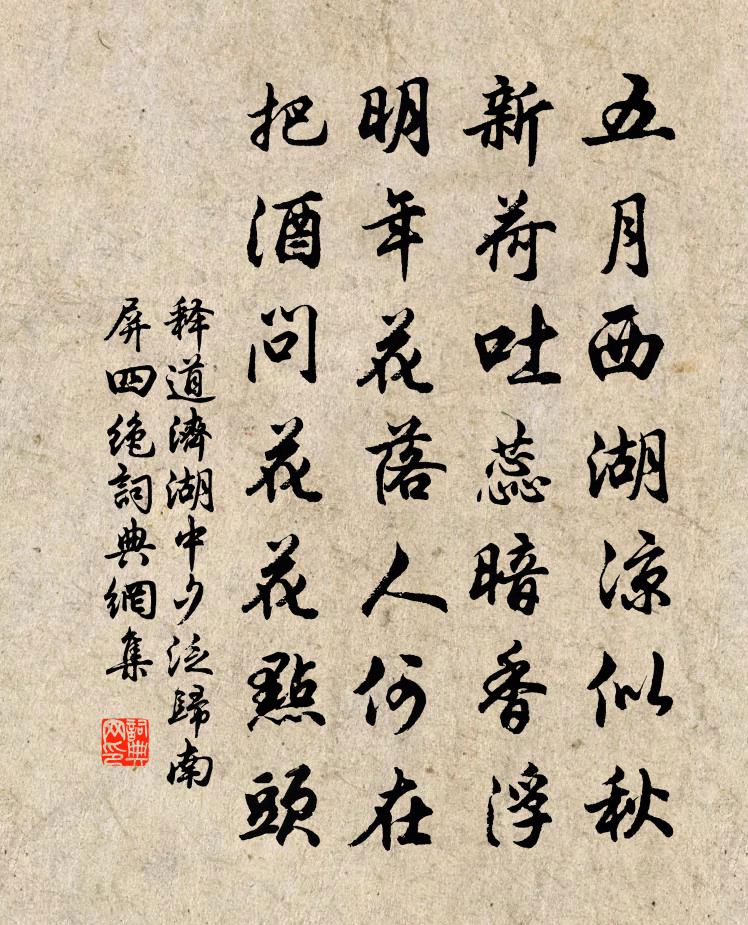 五月西湖涼似秋
新荷吐蕊暗香浮
明年花落人何在
把酒問花花點頭
释道濟湖中夕泛歸南
屏四絶詞典網集
詞典
网印